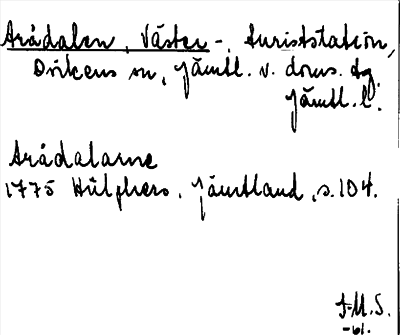 Arådalen, Väster-, turiststation,
Ovikens sn, Jämtl. v. doms. tg.
Jämtl. l.
Arådalarne
1775 Hülphers, Jämtland, s. 104.
J-M.S.
-61.